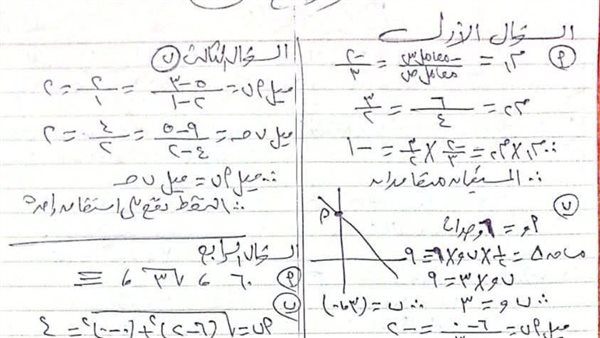 السؤال الأول
(أ) م١ = -معامل س / معامل ص = -٢ / ٣
م٢ = ٦ / ٤ = ٣ / ٢
∴ م١ × م٢ = -٢/٣ × ٣/٢ = -١
∴ المستقيمان متعامدان
(ب)
أ و = ٦ وحدات
مساحة Δ = ١/٢ × ب و × ٦ = ٩
ب و × ٣ = ٩
∴ ب و = ٣ ∴ ب = (٣، ٠)
أ
السؤال الثالث (ب)
ميل أ ب = ٥ - ٣ / ٢ - ١ = ٢ / ١ = ٢
ميل ب حـ = ٩ - ٥ / ٤ - ٢ = ٤ / ٢ = ٢
∴ ميل أ ب = ميل ب حـ
∴ النقط تقع على استقامة واحدة
السؤال الرابع
(أ) ٦٠ ، ٣√ ، ≡
(ب)